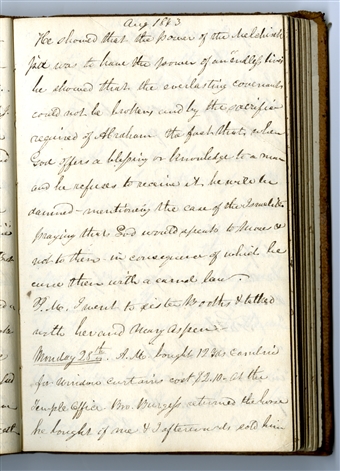 Aug 1843
He showed that the power of the Melchisek
P'd was to have the power of an "endless lives
he showed that the everlasting covenants
could not be broken and by the sacrifice
required of Abraham the fact that, when
God offers a blessing or knowledge to a man
and he refuses to receive it he will be
damned - mentioning the case of the Israelites
praying that God would speak to Moses &
not to them in consequence of which he
cursed them with a carnal law
P.M. I went to sister Booths & talked
with her and Mary Aspen
Monday 28th. A.M. bought 12 yds cambric
for window curtains cost $2.10. At the
Temple Office Bro. Burgess returned the horse
he bought of me & I afterwards sold him